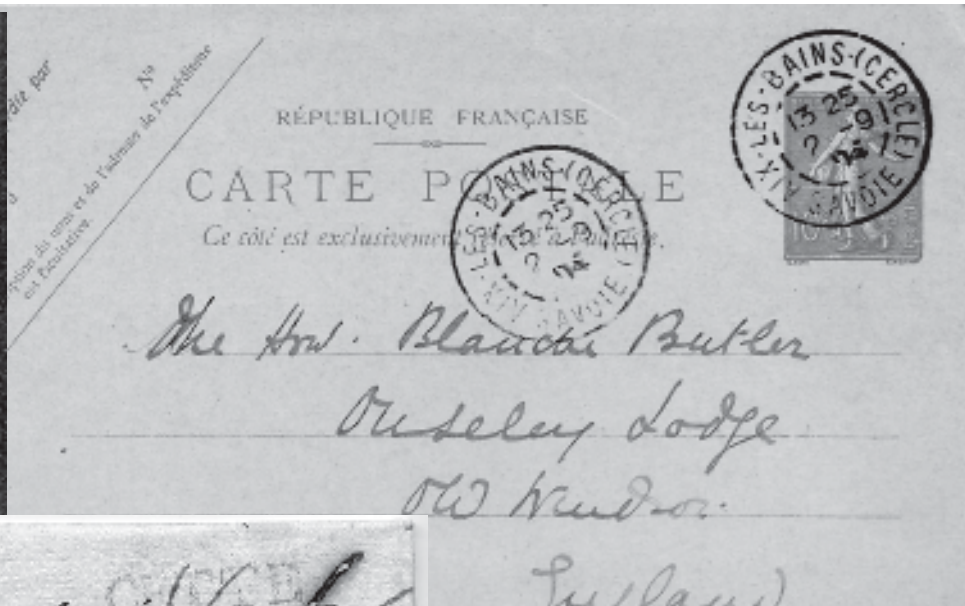 dié par
Nº
à
ption du nom et de l'adresse de l'expéditeur
est facultative.
RÉPUBLIQUE FRANÇAISE
CARTE POSTALE
Ce côté est exclusivement réservé à l'adresse.
AIX-LES-BAINS-(CERCLE)
13 25
2 -9
SAVOIE
AIX-LES-BAINS-(CERCLE)
13 25
2 -9
SAVOIE
10
The Hon. Blanche Butler
Ouseley Lodge
Old Windsor.
England